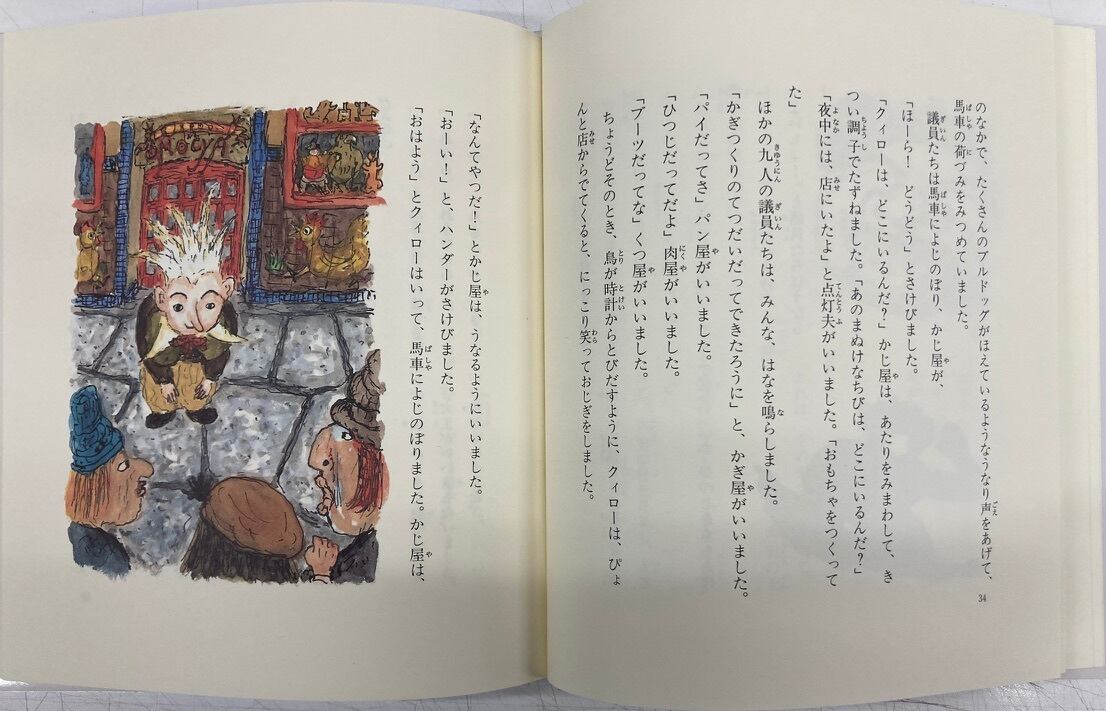 のなかで、たくさんのブルドッグがほえているようなうなり声をあげて、
馬車の荷づみをみつめていました。
議員たちは馬車によじのぼり、かじ屋が、
「ほーら！　どうどう」とさけびました。
「クィローは、どこにいるんだ？」かじ屋は、あたりをみまわして、き
つい調子でたずねました。「あのまぬけなちびは、どこにいるんだ？」
「夜中には、店にいたよ」と点灯夫がいいました。「おもちゃをつくって
た」
ほかの九人の議員たちは、みんな、はなを鳴らしました。
「かぎつくりのてつだいだってできたろうに」と、かぎ屋がいいました。
「パイだってさ」パン屋がいいました。
「ひつじだってだよ」肉屋がいいました。
「ブーツだってな」くつ屋がいいました。
ちょうどそのとき、鳥が時計からとびだすように、クィローは、ぴょ
んと店からでてくると、にっこり笑っておじぎをしました。
34
「なんてやつだ！」とかじ屋は、うなるようにいいました。
「おーい！」と、ハンダーがさけびました。
「おはよう」とクィローはいって、馬車によじのぼりました。かじ屋は、